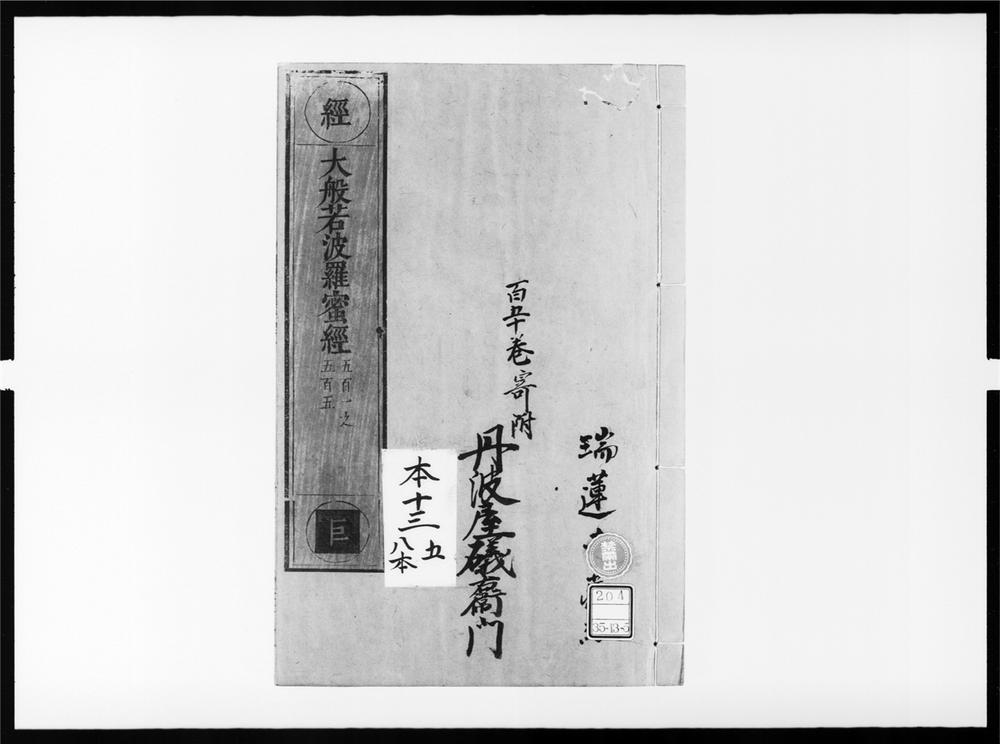 瑞蓮
百五十卷寄附
丹波屋磯右衛門
經
大般若波羅蜜經
五百一之
五百五
巨
本十三
五
八本
204
35-13-5